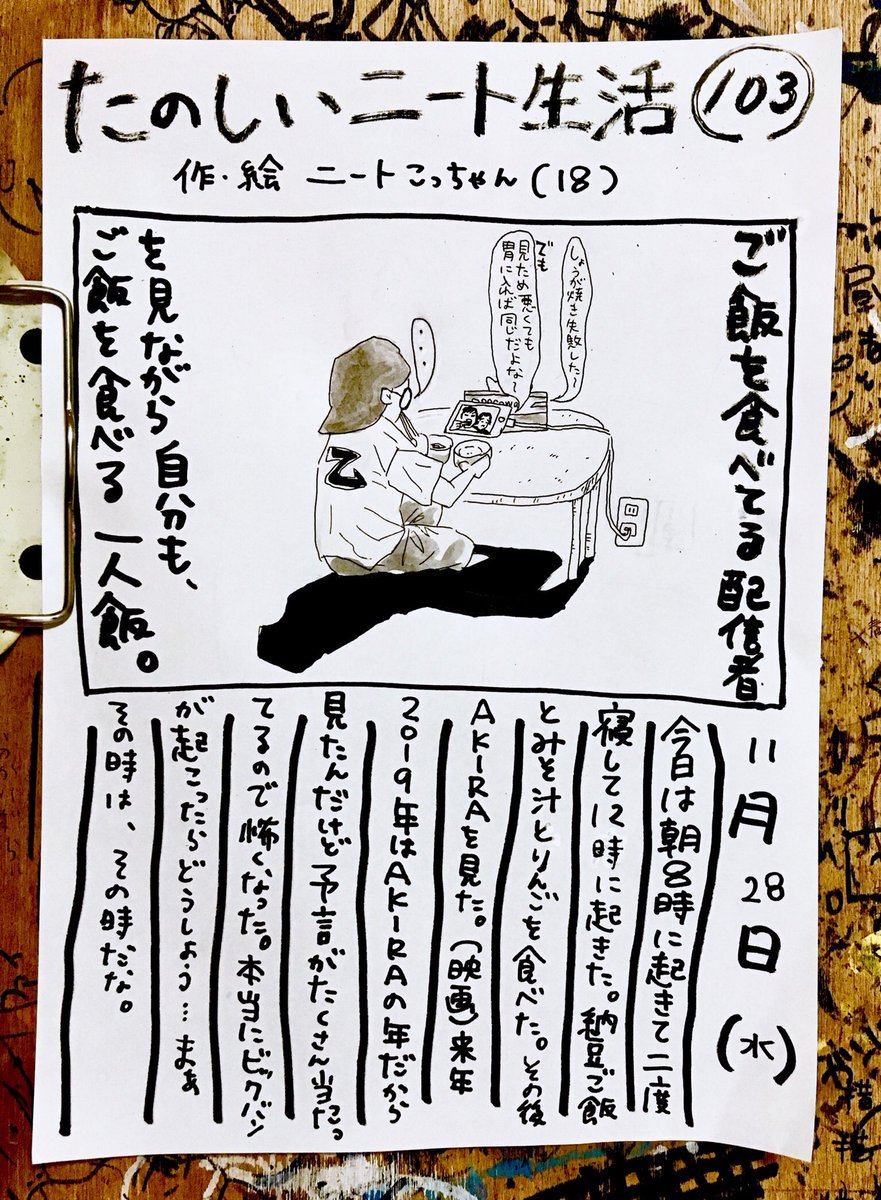 たのしいニート生活 103
作・絵 ニートこっちゃん(18)
ご飯を食べてる配信者
しょうが焼き失敗した〜
でも
見ため悪くても
胃に入れば同じだよな〜
・・・
乙
を見ながら自分も、
ご飯を食べる一人飯。
11月28日(水)
今日は朝8時に起きて二度
寝して12時に起きた。納豆ご飯
とみそ汁とりんごを食べた。その後
AKIRAを見た。(映画)来年
2019年はAKIRAの年だから
見たんだけど予言がたくさん当たっ
てるので怖くなった。本当にビックバン
が起こったらどうしよう…まぁ
その時は、その時だな。